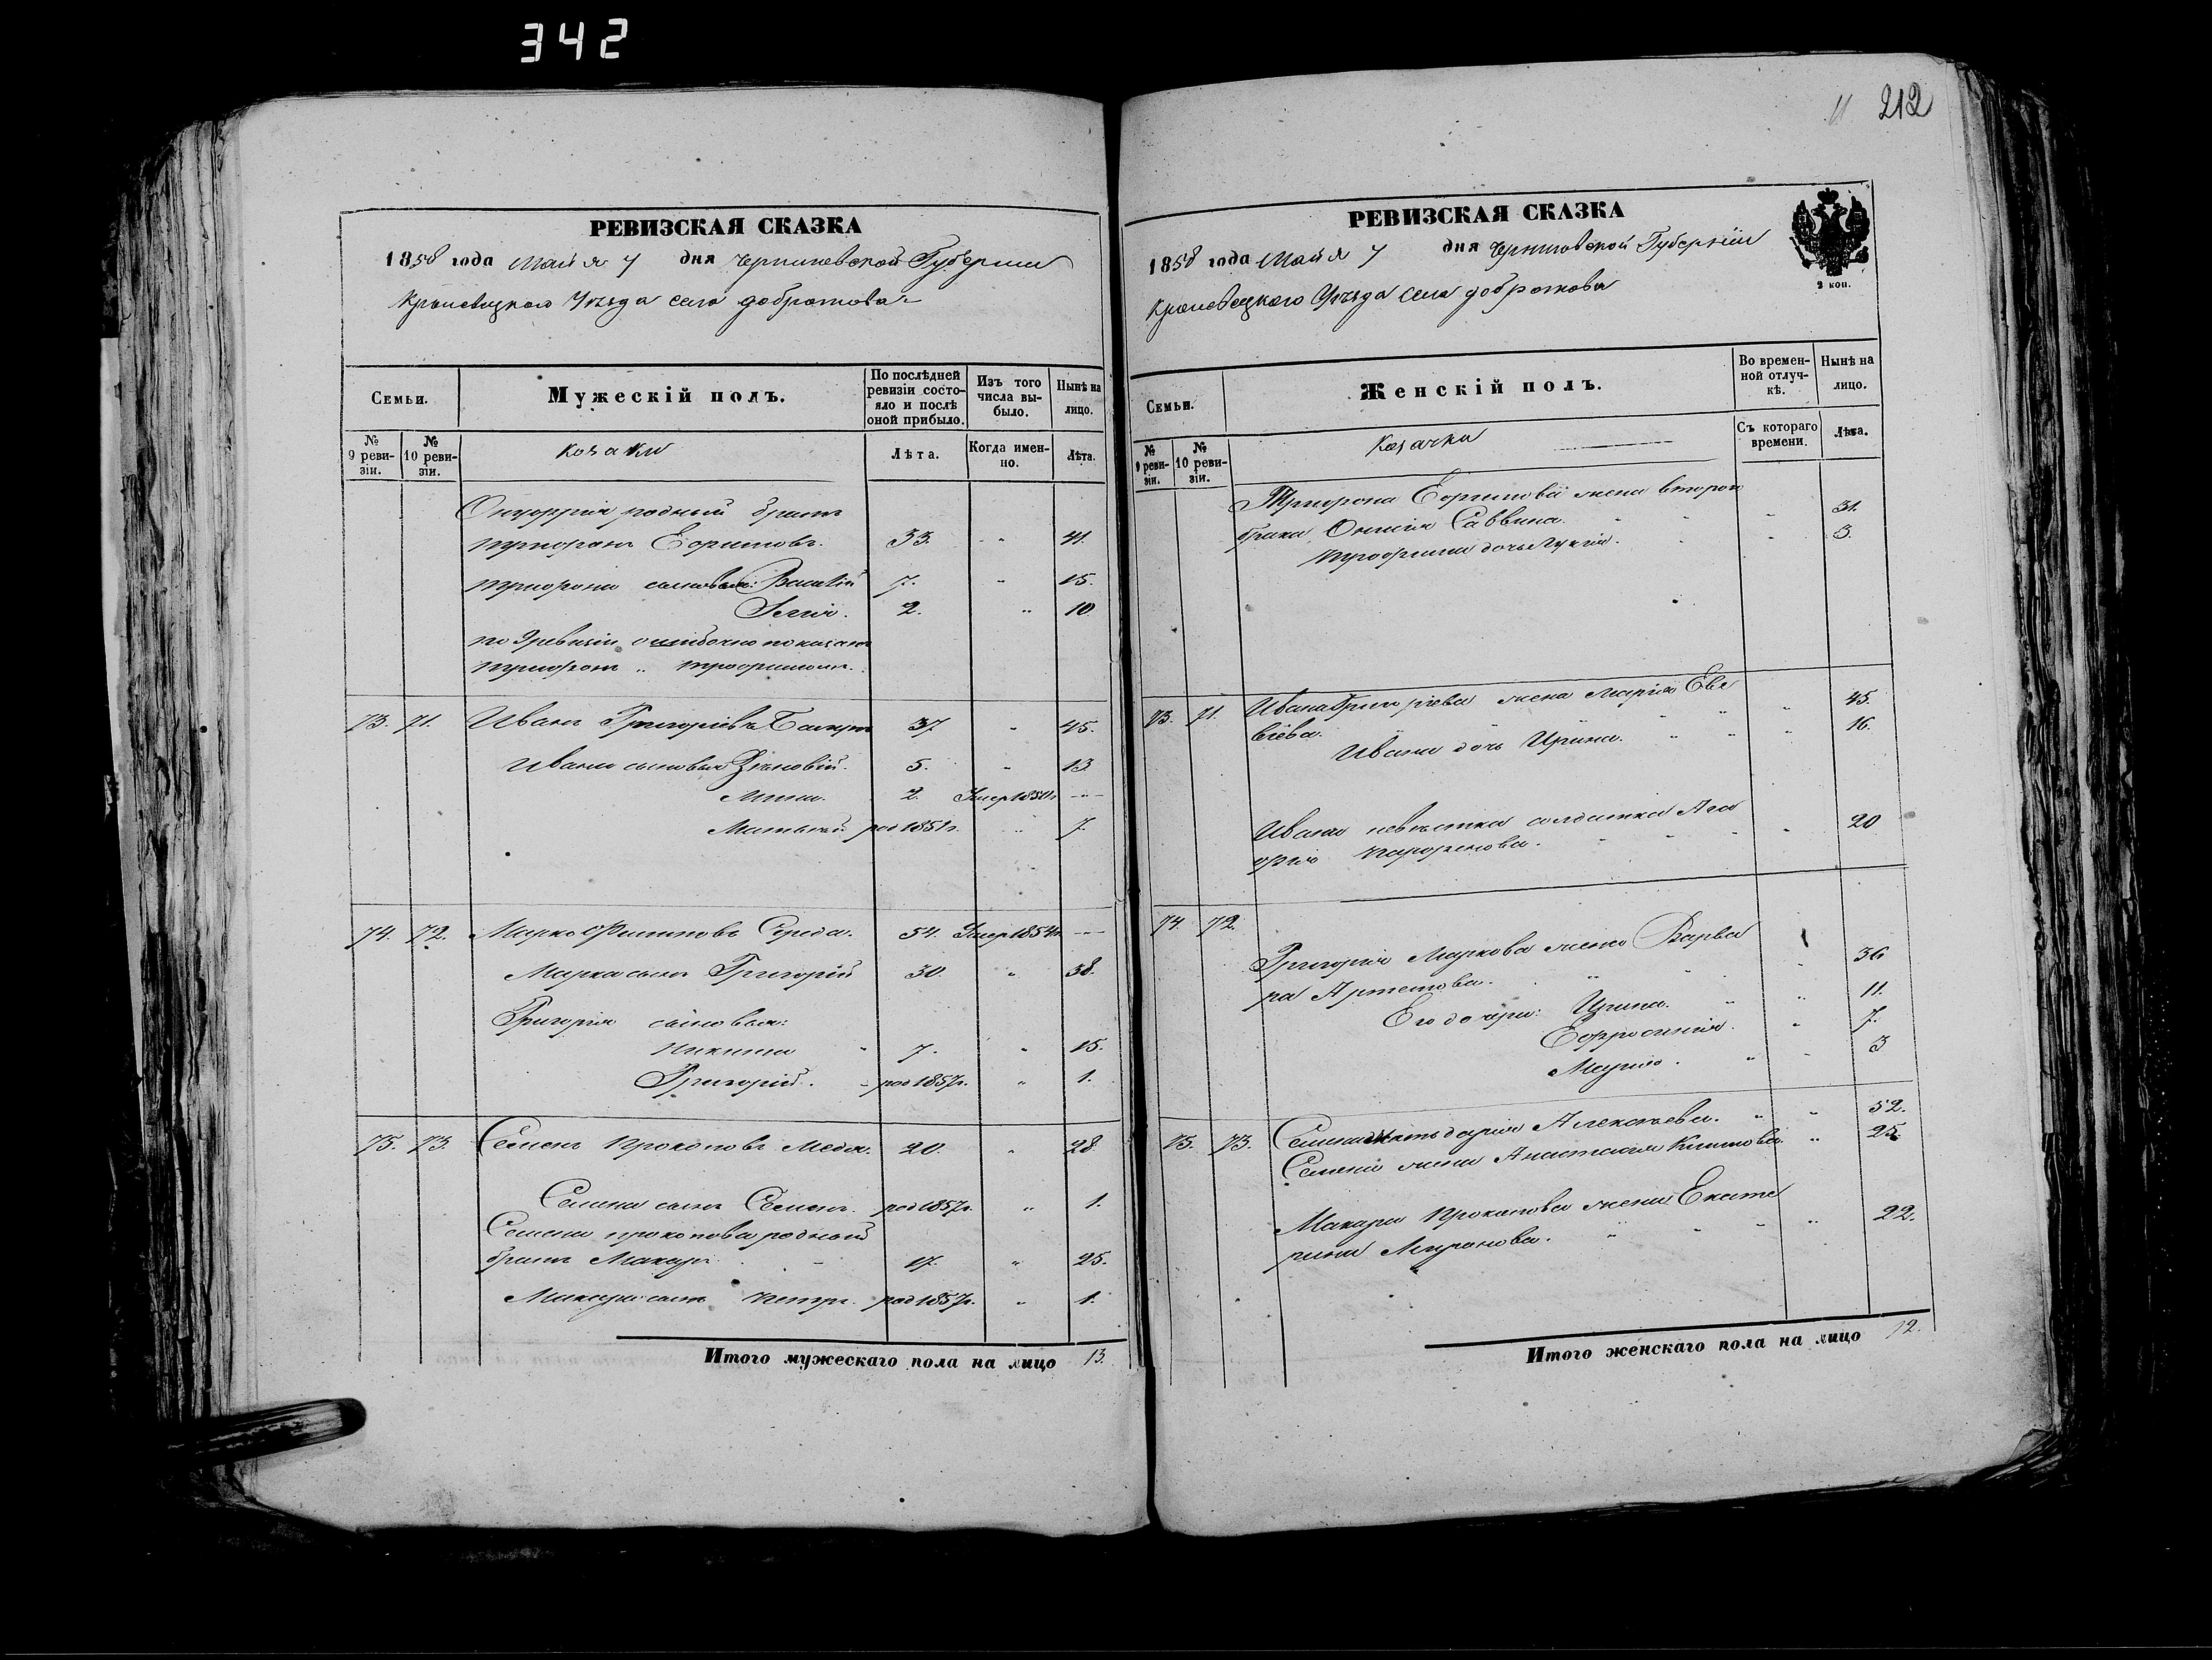 342
212
РЕВИЗСКАЯ СКАЗКА
1858 года Майя 7 дня Черниговской Губернии
Кролевецкого Уѣзда села Добротова
Семьи.
Мужескій полъ.
По послѣдней ревизіи состояло и послѣ оной прибыло.
Изъ того числа выбыло.
Нынѣ на лицо.
№ 9 ревизіи.
№ 10 ревизіи.
козаки
Лѣта.
Когда именно.
Лѣта.
родный братъ
33. " 41.
сыновья: Василій 7. " 15.
2. " 10
по 9 ревизіи ошибочно показанъ
73. 71. Иванъ Григорьевъ 37 " 45.
Ивана сыновья Зѣновій. 5. " 13.
2. Умер 185
Матвѣй род 1851г. " 7.
74. 72. Марко Филиповъ Середа. 54. Умер 1854г. "
Марка сынъ Григорій 30. " 38.
Григорія сыновья:
Никита 7. " 15.
Григорій. род 1857г. " 1.
75. 73. Семенъ Прокоповъ 20. " 28.
Семена сынъ Семенъ. род 1857г. " 1.
Семена Прокопова родный
братъ Макаръ 17. " 25.
Макара сынъ Петръ. род 1857г. " 1.
Итого мужескаго пола на лицо 13.
РЕВИЗСКАЯ СКАЗКА
1858 года Майя 7 дня Черниговской Губерніи
Кролевецкого Уѣзда Села Добротова
2 коп.
Семьи.
Женскій полъ.
Во временной отлучкѣ.
Нынѣ на лицо.
№ 9 ревизіи.
№ 10 ревизіи.
Козачки
Съ котораго времени.
Лѣта.
жена второго
брака Саввина. " 31.
дочь " 3.
73. 71. Ивана Григорьева жена Марія Евс
" 45.
Ивана дочь Ирина. " 16.
Ивана невѣстка солдатка Ага
фія Парфенова. " 20
74. 72.
Григорія Маркова жена Варва
ра Артемова. " 36
Его дочери: Ирина. " 11.
Ефросинія. " 7.
" 3
75. 73. Семена мать Дарія Алексѣева. " 52.
Семена жена Анастасія Климова. " 25.
Макара Прокопова жена Екате
рина Миронова. " 22.
Итого женскаго пола на лицо 12.